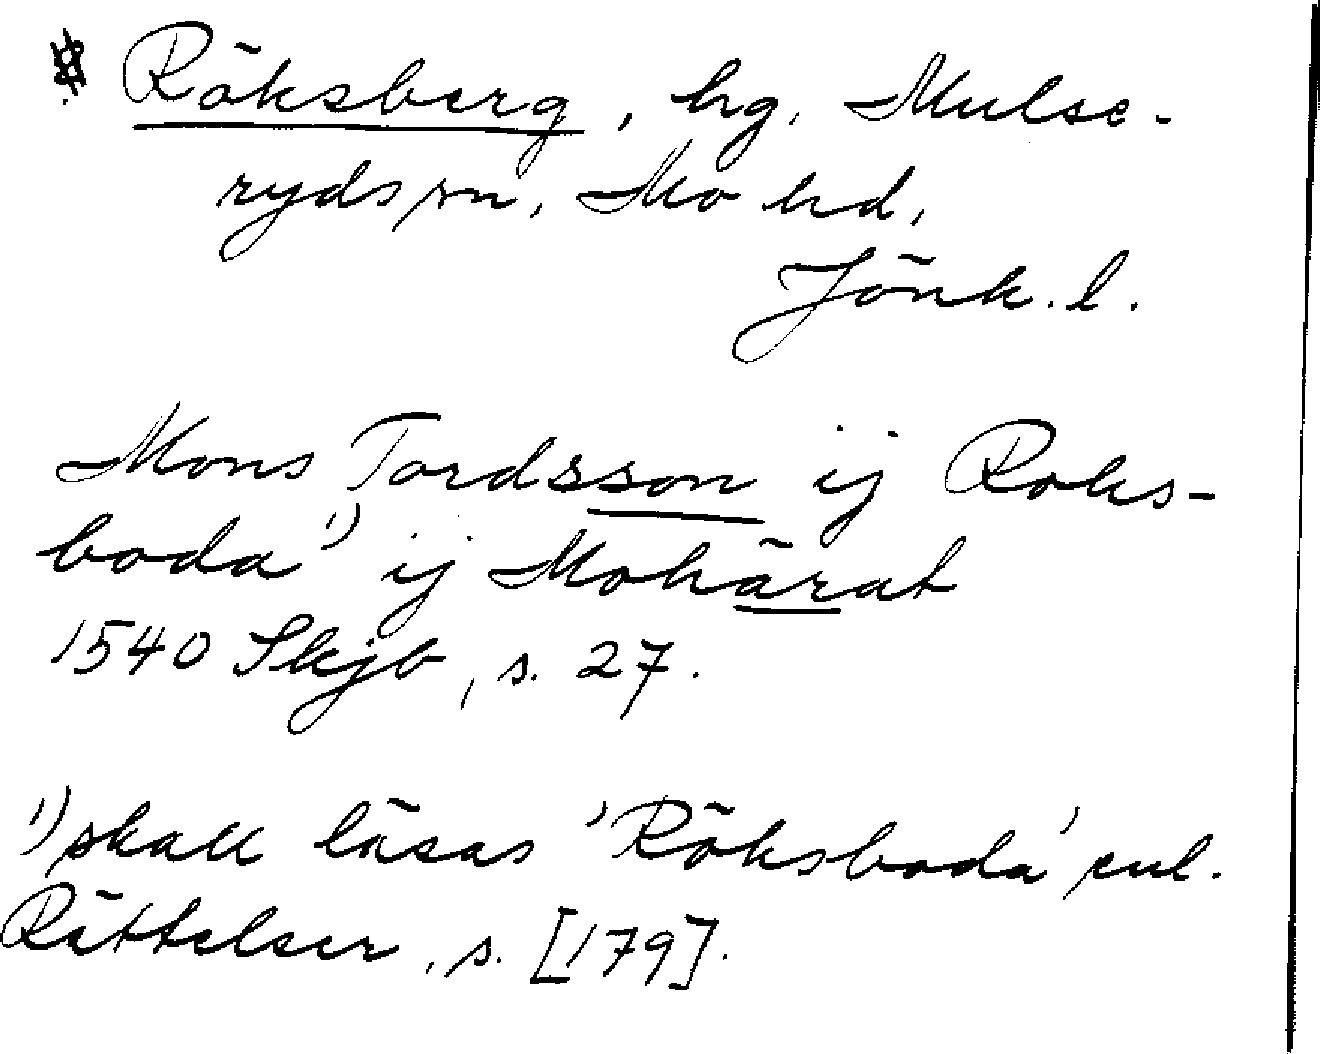 Röksberg, hg, Mulse-
ryds sn, Mo hd,
Jönk. l.
Mons Tordsson ij Roks-
boda ¹) ij Mohärat
1540 Skjb, s. 27.
¹) skall läsas 'Röksboda' enl.
Rättelser, s. [179].